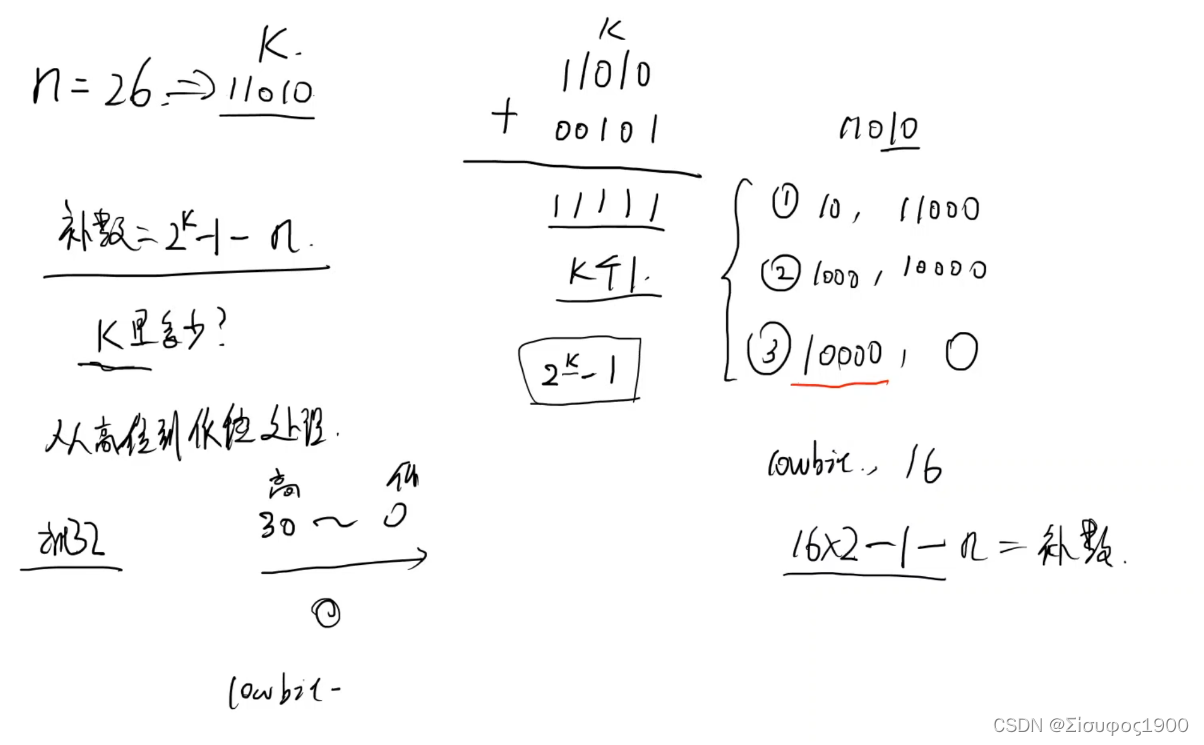 K.
n = 26 ⇒ 11010
补数 = 2^K - 1 - n.
K是多少?
从高位到低位处理.
高 低
30 ~ 0
①
lowbit -
K
11010
+ 00101
11111
K个1.
2^K - 1
11010
① 10, 11000
② 1000, 10000
③ 10000, 0
lowbit., 16
16×2 - 1 - n = 补数.
CSDN @Σίσυφος1900